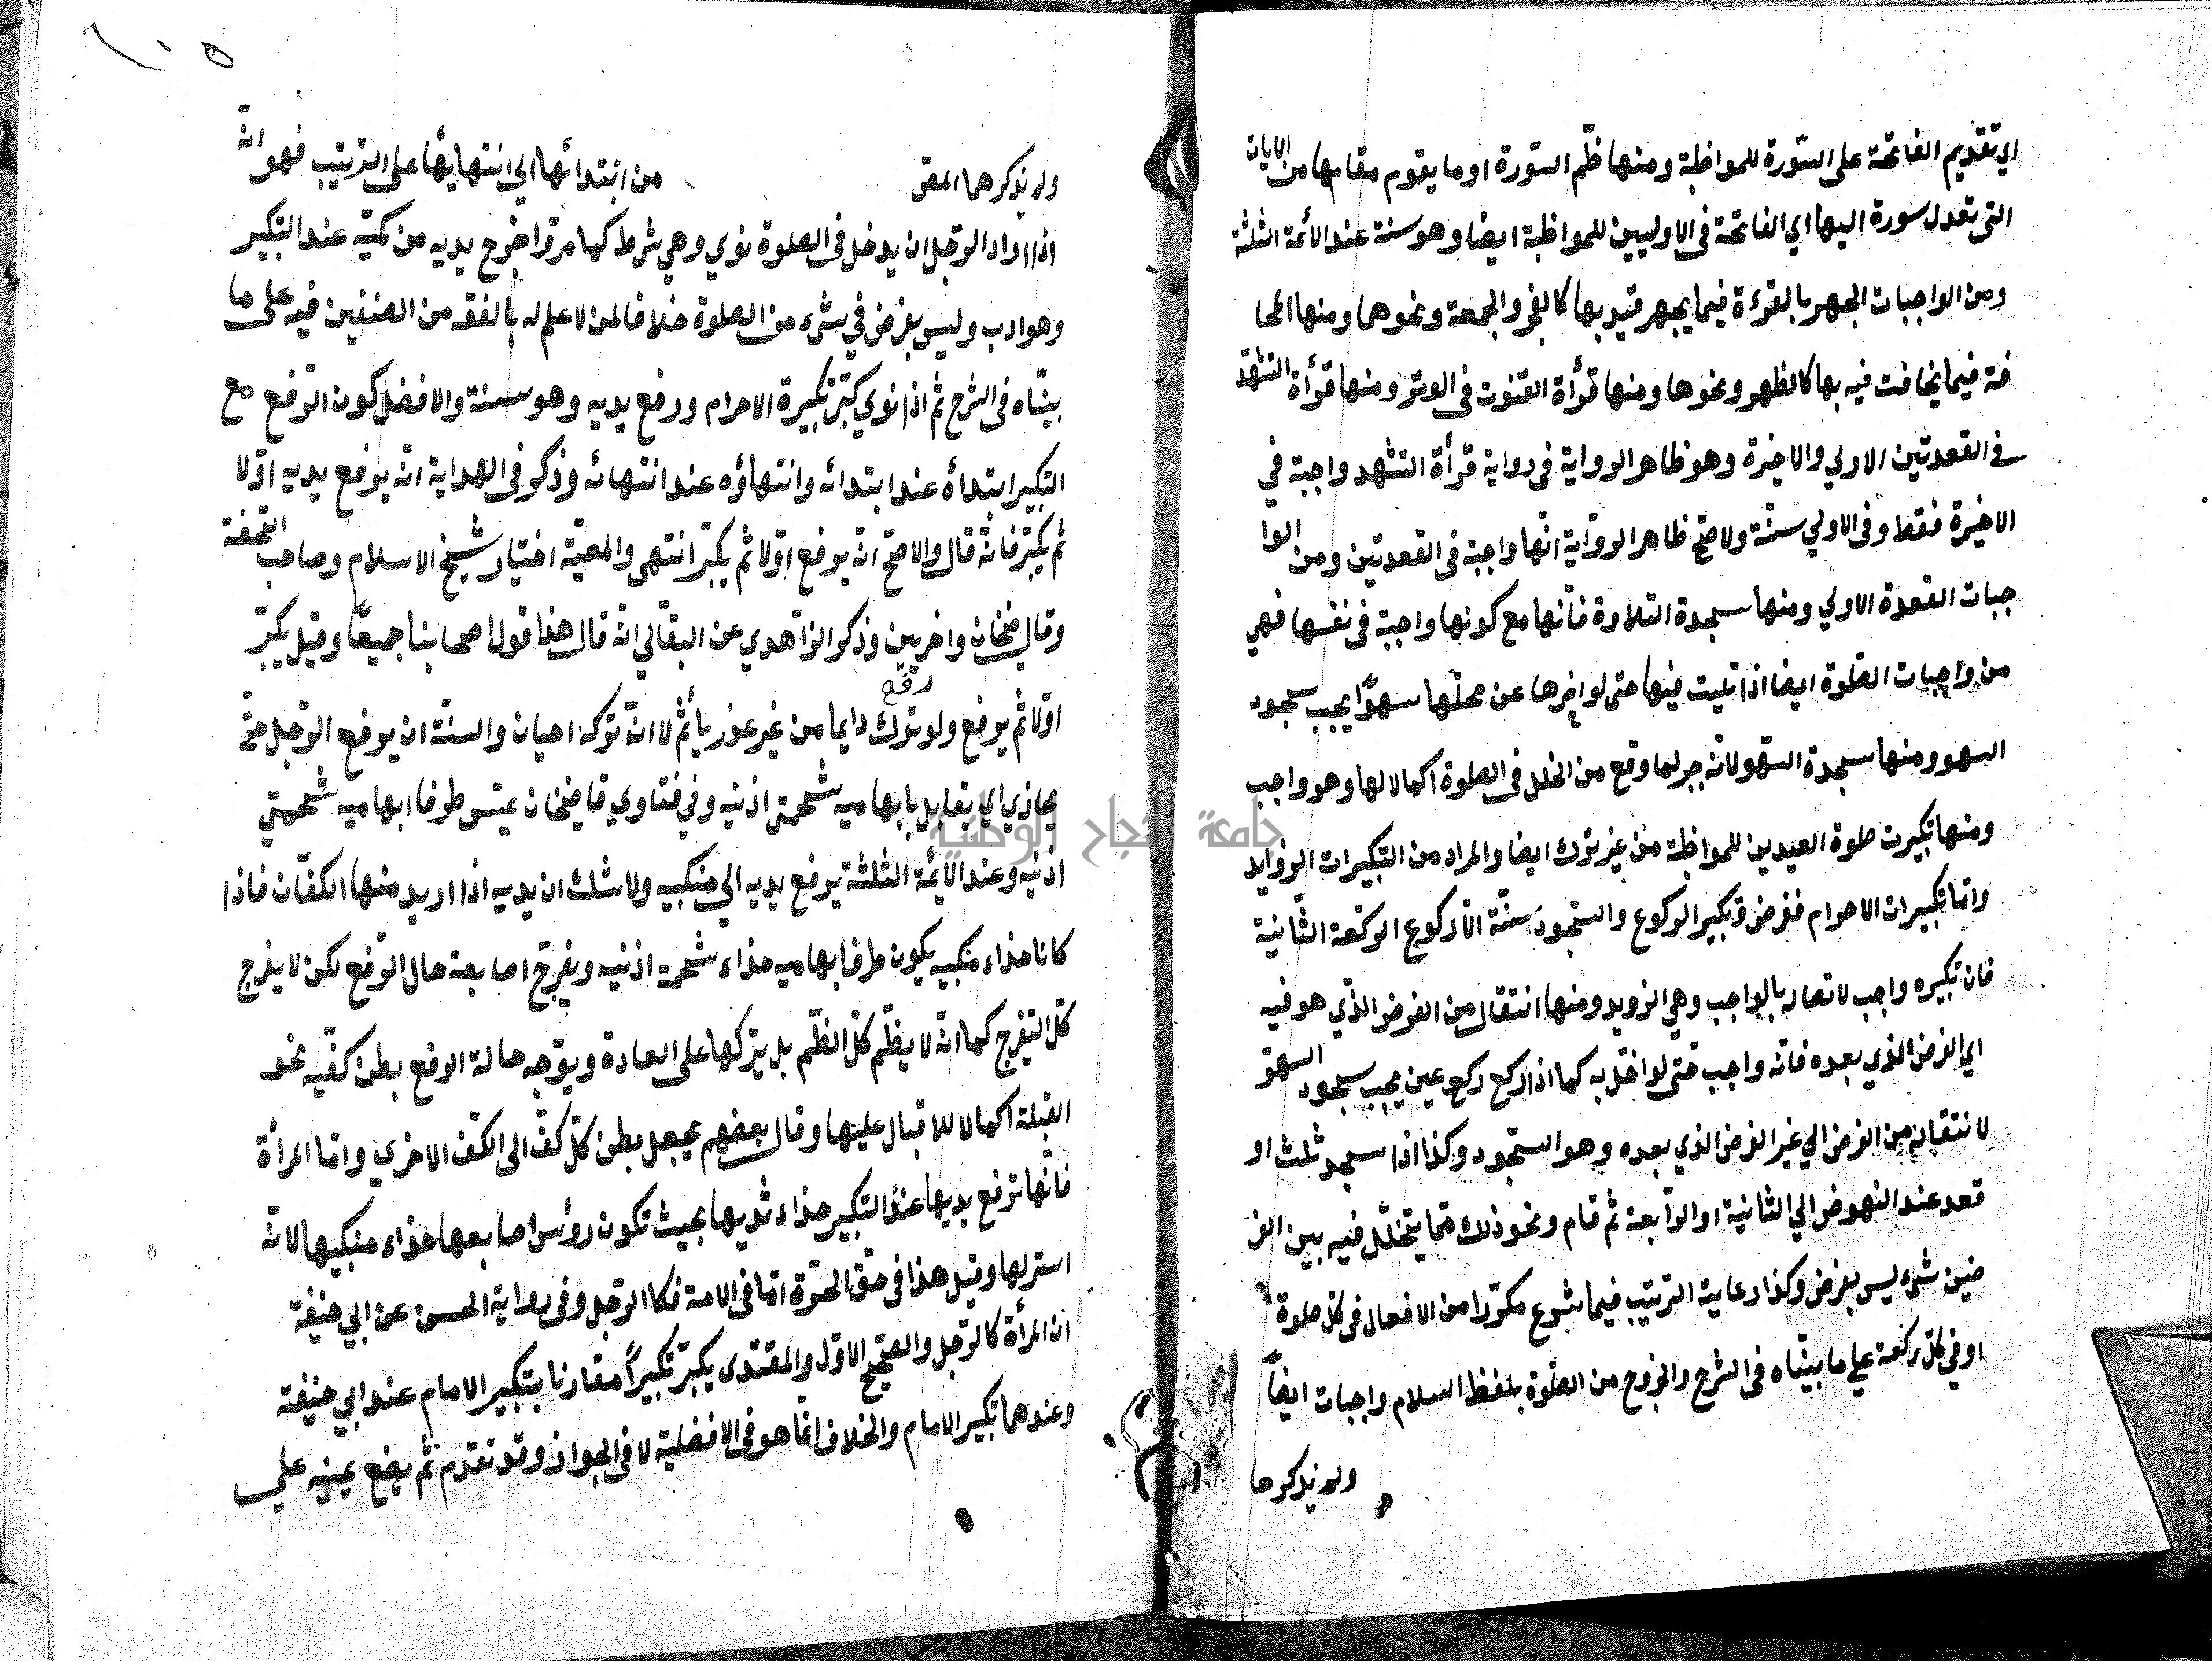 اي تقديم الفاتحة على السّورة للمواظبة ومنها ظمّ السّورة او ما يقوم مقامها من الايات
التى تعدل سورة اليها اي الفاتحة فى الاوليين للمواظبة ايضا وهو سنة عند الأئمة الثلثة
ومن الواجبات الجهر بالقرءة فيما يجهر فيه بها كالفجر والجمعة ونحوهما ومنها المخا
فتة فيما يخافت فيه بها كالظهر ونحوها ومنها قرأة القنوت فى الوتر ومنها قرأة التشهّد
فى القعدتين الاولي والاخيرة وهو ظاهر الرواية فى رواية قرأة التشهد واجبة في
الاخيرة فقط وفى الاولي سنّة ولاصحّ ظاهر الرّواية انّها واجبة فى القعدتين ومن الوا
جبات القعدة الاولي ومنها سجدة التلاوة فأنّها مع كونها واجبة فى نفسها فهي
من واجبات الصّلوة ايضا اذا تليت فيها حتى لو اخرها عن محلّها سهوًا يجب سجود
السهو ومنها سجدة السّهو لانّه جبر لما وقع من الخلل فى الصلوة اكمالا لها وهو واجب
ومنها تكبيرت صلوة العيدين للمواظبة من غير ترك ايضا والمراد من التكبيرات الزوايد
وامّا تكبيرات الاحرام ففرض وتكبير الركوع والسّجود سنّة الّا ركوع الركعة الثّانية
فان تكبيره واجب لاتصاله بالواجب وهي الزويد ومنها انتقال من الفرض الذّي هو فيه
الي الفرض الذي بعده فانّه واجب حتى لو اخلّ به كما اذا ركع ركوعين يجب سجود السهو
لانتقاله من الفرض الي غير الفرض الذي بعده وهو السّجود وكذا اذا سجد ثلث او
قعد عند النهوض الي الثانية او الرّابعة ثم قام ونحو ذلك ممّا يتخلّل فيه بين الفر
ضين شىء ليس بفرض وكذا رعاية الترتيب فيما شرع مكرّرا من الافعال فى كل صلوة
او في كلّ ركعة علي ما بيّناه فى الشرح والخروج من الصّلوة بلفظ السلام واجبات ايضاً
ولم نيذكرها
١٠٥
ولم يذكرهما المص من ابتدائها الى انتهائها على الترتيب فهو انّه
اذا اراد الرّجل ان يدخل فى الصلوة نوي وهي شرط كما مرّ واخرج يديه من كمّيّه عند التكبير
وهو ادب وليس بفرض في شىء من الصلوة خلافا لمن لا علم له بالفقه من المصنفين فيه على ما
بيّناه فى الشرح ثم اذا نوي كبّر تكبيرة الاحرام ورفع يديه وهو سنة والافضل كون الرّفع مع
التكبير ابتدأه عند ابتدائه وانتهاؤه عند انتهائه وذكر فى الهداية انّه يرفع يديه اوّلا
ثم يكبّر فانّه قال والاصحّ انّه يرفع اوّلا ثم يكبّر انتهى والمعيّة اختيار شيخ الاسلام وصاحب التحفة
وقاضيخان واخرين وذكر الزّاهدي عن البقّالي انّه قال هذا قول اصحابنا جميعًا وقيل يكبّر
اوّلا ثم يرفع ولو ترك رفع دايما من غير عذر يأثم لا انّه تركه احيان والسنّة ان يرفع الرّجل حتى
يحاذي اي يقابل بابهاميه شحمتى اذنيه وفي فتاوي قاضيخان يمسّ طرفا ابهاميه شحمتي
اذنيه وعند الأئمة الثلثة يرفع يديه الي منكبيه ولا شك ان يديه اذا اريد منها الكفّان فاذا
كانا حذاء منكبيه يكون طرف ابهاميه حذاء شحمة اذنيه ويفرّج اصابعه حال الرّفع لكن لا يفرج
كلّ التفرج كما انّه لا يظّم كلّ الظّم بل يتركها على العادة ويوّجه حالة الرفع بطن كفّيه نحو
القبلة اكمالا للاقبال عليها وقال بعضهم يجعل بطن كلّ كفّ الى الكف الاخري وامّا المرأة
فانّها ترفع يديها عند التكبير حذاء ثدييها بحيث تكون رؤس اصابعها حذاء منكبيها لانّه
استر لها وقيل هذا فى حق الحرّة امّا فى الامة فكا الرّجل وفى رواية الحسن عن ابي حنيفة
ان المرأة كالرّجل والصّحيح الاوّل والمقتدى يكبّر تكبيرًا مقارنا بتكبير الامام عند ابي حنيفة
وعندهما تكبير الامام والخلاف انّما هو فى الافضلية لا فى الجواز وقد تقدم ثم يضع يمينه علي
جامعة النجاح الوطنية